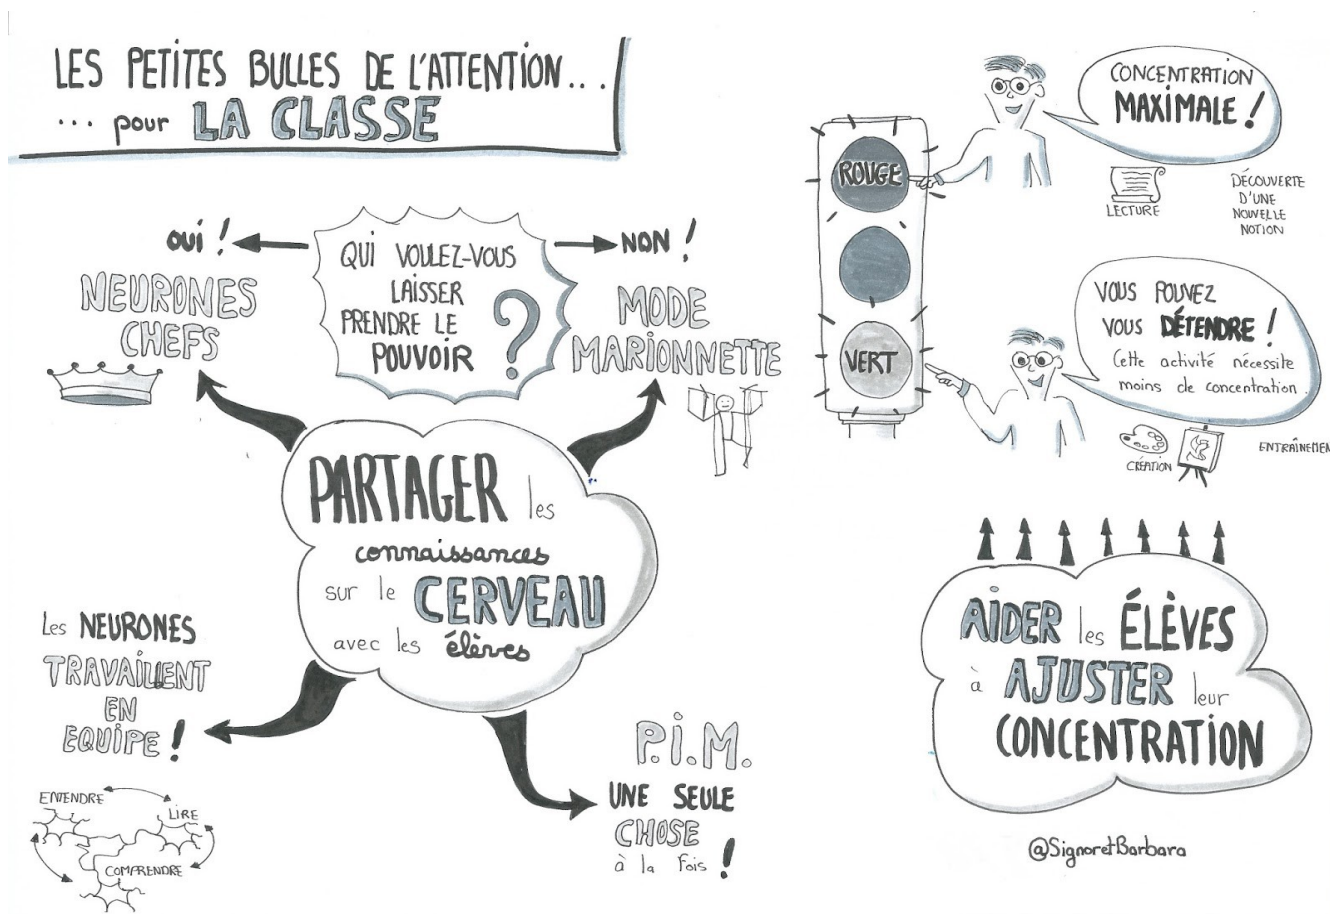 LES PETITES BULLES DE L'ATTENTION...
... pour LA CLASSE
QUI VOULEZ-VOUS
LAISSER
PRENDRE LE
POUVOIR ?
OUI !
NEURONES
CHEFS
NON !
MODE
MARIONNETTE
PARTAGER les
connaissances
sur le CERVEAU
avec les élèves
Les NEURONES
TRAVAILLENT
EN
EQUIPE !
ENTENDRE
LIRE
COMPRENDRE
P.I.M.
UNE SEULE
CHOSE
à la fois !
ROUGE
VERT
CONCENTRATION
MAXIMALE !
LECTURE
DÉCOUVERTE
D'UNE
NOUVELLE
NOTION
VOUS POUVEZ
VOUS DÉTENDRE !
Cette activité nécessite
moins de concentration.
CRÉATION
ENTRAÎNEMEN
AIDER les ÉLÈVES
à AJUSTER leur
CONCENTRATION
@SignoretBarbara